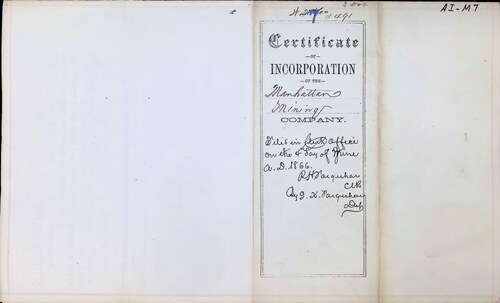 AI-M7
491
Certificate
—OF—
INCORPORATION
—OF THE—
Manhattan
Mining
COMPANY.
Filed in Clerk's Office
on the 4 day of June
A.D. 1866.
R H Farquhar
Clk
By J. X. Farquhar
Dep